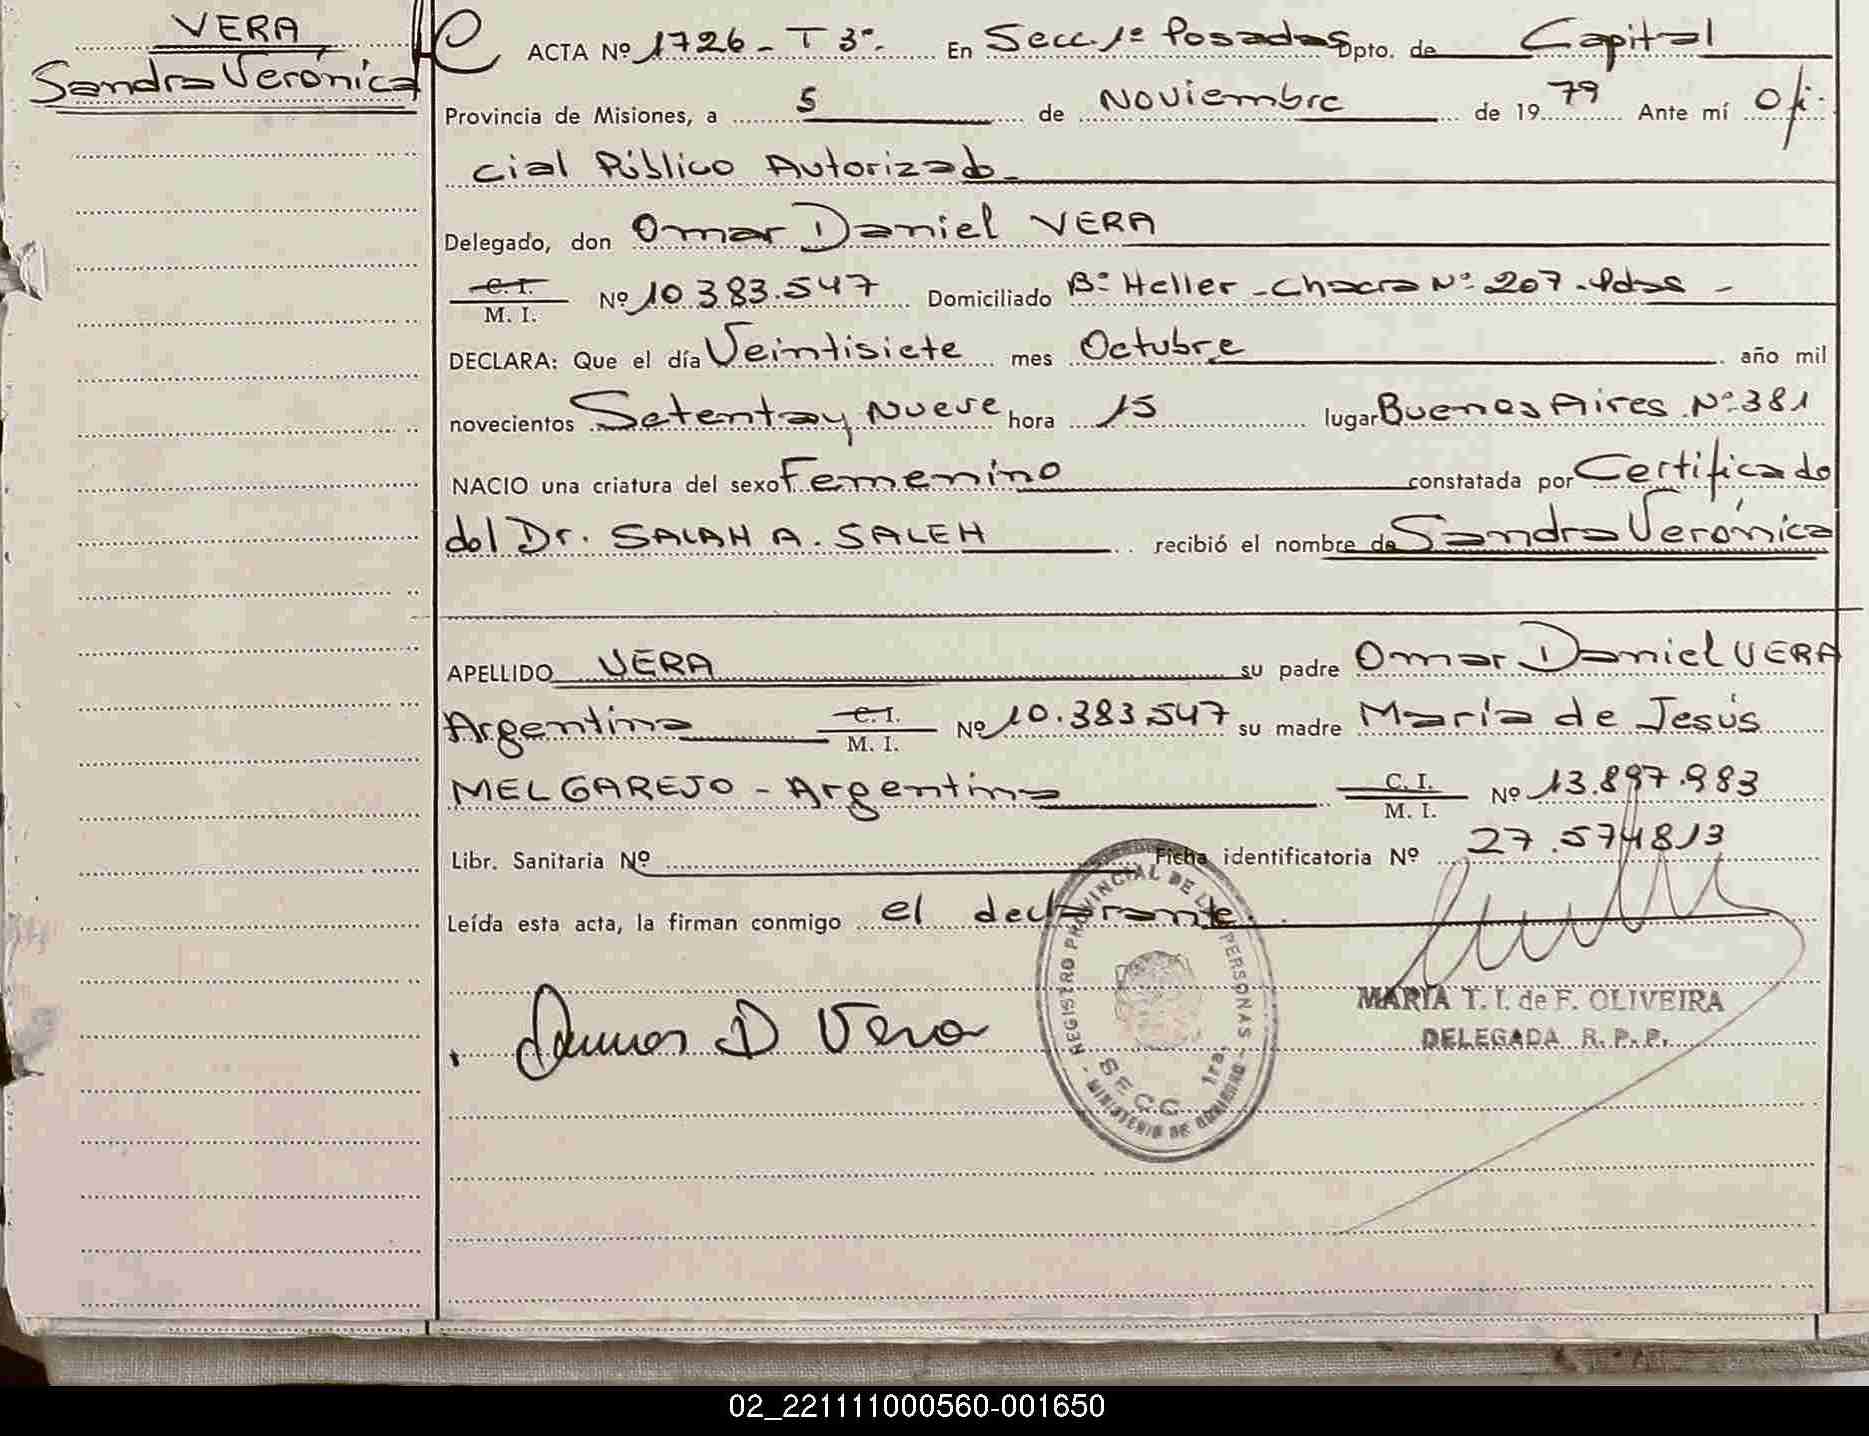 VERA
Sandra Verónica
ACTA Nº 1726 - T 3º. En Secc. 1º Posadas Dpto. de Capital
Provincia de Misiones, a 5 de Noviembre de 1979 Ante mí Ofi-
cial Público Autorizado
Delegado, don Omar Daniel VERA
C. I.
M. I. Nº 10.383.547 Domiciliado Bº Heller - Chacra Nº 207 - Pdas -
DECLARA: Que el día Veintisiete mes Octubre año mil
novecientos Setenta y Nueve hora 15 lugar Buenos Aires Nº 381
NACIO una criatura del sexo Femenino constatada por Certificado
del Dr. SALAH A. SALEH recibió el nombre de Sandra Verónica
APELLIDO VERA su padre Omar Daniel VERA
Argentina C. I.
M. I. Nº 10.383.547 su madre María de Jesús
MELGAREJO - Argentina C. I.
M. I. Nº 13.897.983
Libr. Sanitaria Nº Ficha identificatoria Nº 27.574813
Leída esta acta, la firman conmigo el declarante.
D Vera
REGISTRO PROVINCIAL DE LAS PERSONAS
SECC. 1ra.
MINISTERIO DE GOBIERNO
MARIA T. I. de F. OLIVEIRA
DELEGADA R. P. P.
02_221111000560-001650